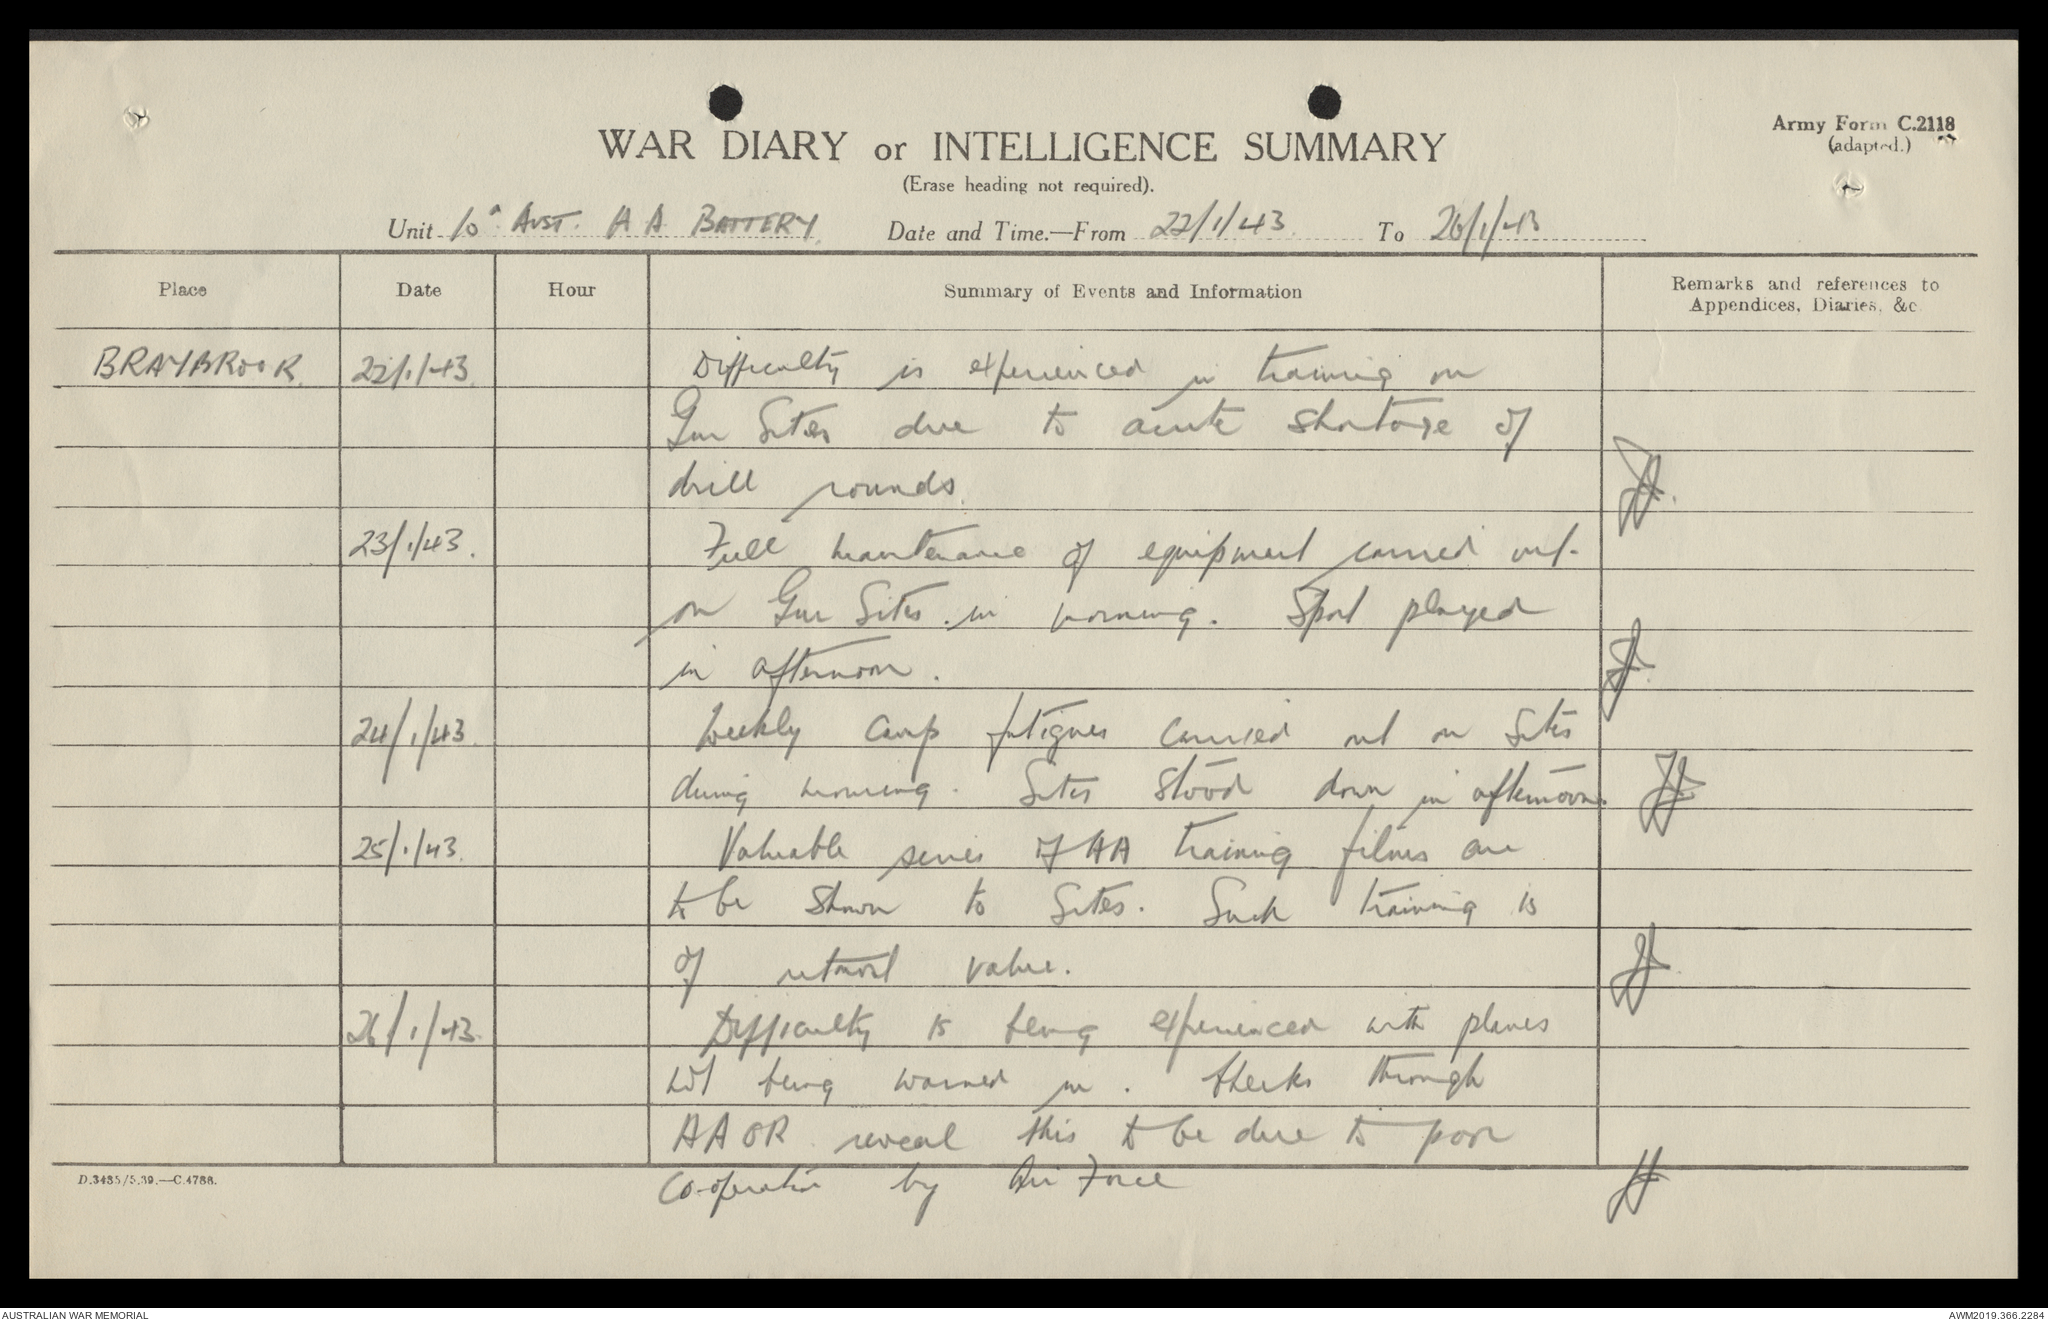 Army Form C.2118
(adapted.)
WAR DIARY or INTELLIGENCE SUMMARY
(Erase heading not required).
Unit 10 AUST. A A BATTERY. Date and Time.—From 22/1/43. To 26/1/43
Place Date Hour Summary of Events and Information Remarks and references to
Appendices, Diaries, &c.
BRAYBROOK. 22/1/43. Difficulty is experienced in training on
Gun Sites due to acute shortage of
drill rounds.
23/1/43. Full maintenance of equipment carried out
on Gun Sites in morning. Sport played
in afternoon.
24/1/43. Weekly camp fatigues carried out on Sites
during morning. Sites stood down in afternoon.
25/1/43. Valuable series of AA training films are
to be shown to Sites. Such training is
of utmost value.
26/1/43. Difficulty is being experienced with planes
not being warned in. Checks through
AAOR reveal this to be due to poor
Co-operation by Air Force
D.3485/5.39.—C.4788.
AUSTRALIAN WAR MEMORIAL AWM2019.366.2284